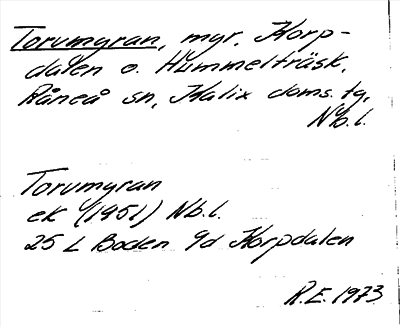 Torumyran, myr, Korp-
dalen o. Hummelträsk,
Råneå sn, Kalix doms. tg,
Nb.l.
Torumyran
ek (1951) Nb.l.
25 L Boden 9d Korpdalen
R.E. 1973